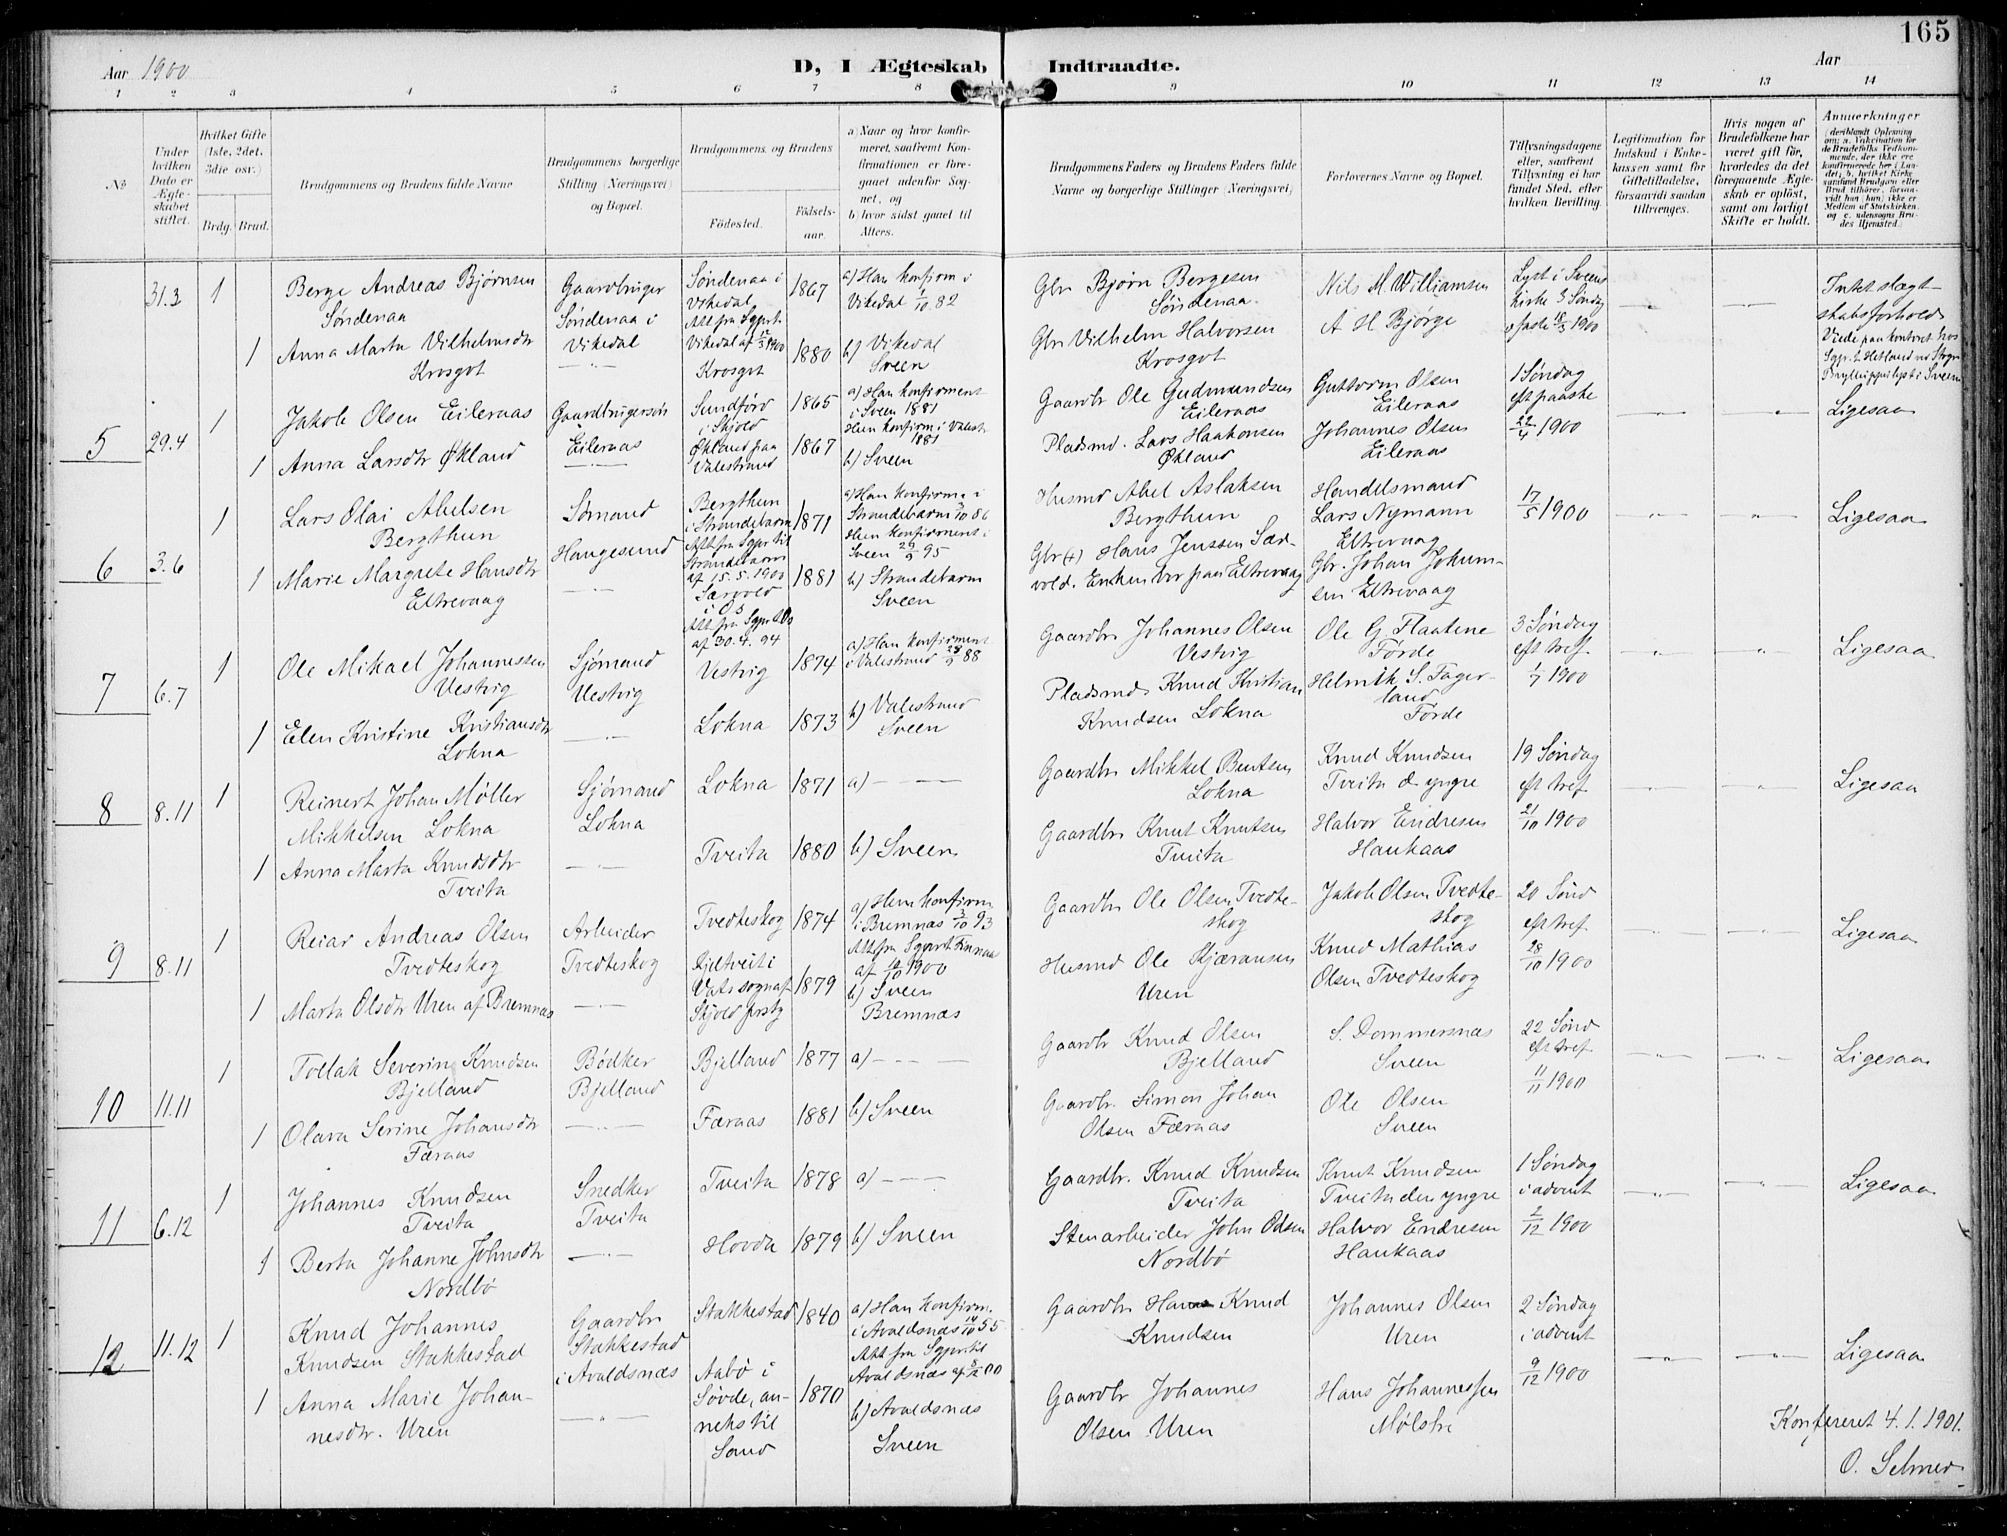 165
Aar 1900
D, I Ægteskab Indtraadte.
Aar
1 2 3 4 5 6 7 8 9 10 11 12 13 14
No
Under hvilken Dato er Ægteskabet stiftet.
Hvilket Gifte (1ste, 2det, 3die osv.)
Brdg. Brud.
Brudgommens og Brudens fulde Navne
Brudgommens borgerlige Stilling (Næringsvei) og Bopæl.
Brudgommens, og Brudens
Fødested.
Fødselsaar.
a) Naar og hvor konfirmeret, saafremt Konfirmationen er foregaaet udenfor Sognet, og
b) hvor sidst gaaet til Alters.
Brudgommens Faders og Brudens Faders fulde Navne og borgerlige Stillinger (Næringsvei)
Forlovernes Navne og Bopæl.
Tillysningsdagene eller, saafremt Tillysning ei har fundet Sted, efter hvilken Bevilling.
Legitimation for Indskud i Enkekassen samt for Giftetilladelse, forsaavidt saadan tiltrænges.
Hvis nogen af Brudefolkene har været gift før, hvorledes da det foregaaende Ægteskab er opløst, samt om lovligt Skifte er holdt.
Anmærkninger
31.3 1
Berge Andreas Bjørnsen
Søndenaa
Gaardbruger
Søndenaa i
Vikedal
Søndenaa i
Vikedal
Att fra Sgprt.
Vikedal af 17/3 1900
1867
a) Han konfirm i
Vikedal 1/10 82
Gbr Bjørn Bergesen
Søndenaa
Nils M Williamsen
Lyst i Sveens
kirke 3 Søndag
i faste 18/3 1900
Intet slægt-
skabsforhold
Viede paa kontoret hos
1 Anna Marta Vilhelmsdtr
Krosgot
Krosgot
1880
b) Vikedal
Sveen
Gbr Vilhelm Halvorsen
Krosgot
A H Bjørge
5 29.4 1
Jakob Olsen Eileraas
Gaardbrugersøn
Eileraas
Sundførd
i Skjold
1865
a) Han konfirment
i Sveen 1881
Hun konfirm i Valestr.
1881
Gaardbr Ole Gudmundsen
Eileraas
Guttorm Olsen
Eileraas
1 Søndag
eft paaske
22/4 1900
Ligesaa
1 Anna Larsdtr Økland
Økland paa
Valestrand
1867
b) Sveen
Pladsmd. Lars Haakonsen
Økland
Johannes Olsen
Eileraas
6 3.6 1
Lars Olai Abelsen
Bergthun
Sømand
Haugesund
Bergthun
i Strandebarm
Att fra Sgpr til
Strandebarm
af 15.5.1900
1871
a) Han konfirm. i
Strandebarm 3/10 86
Hun konfirment i
Sveen 29/9 95
Husmd Abel Aslaksen
Bergthun
Handelsmand
Lars Nymann
Eltrevaag
17/5 1900
Ligesaa
1 Marie Margrete Hansdtr
Eltrevaag
Særvold
i Os
Att fra Sgpr t. Os
af 30.4.94
1881
b) Strandebarm
Sveen
Gbr (+) Hans Jenssen Sær-
vold. Enken bor paa Eltrevaag
Gbr. Johan Jokum-
sen Eltrevaag
7 6.7 1
Ole Mikael Johannessen
Vestvig
Sjømand
Vestvig
Vestvig
1874
a) Han konfirment
i Valestrand 23/9 88
Gaardbr Johannes Olsen
Vestvig
Ole G. Flaatene
Førde
3 Søndag
eft tref
1/7 1900
Ligesaa
1 Elen Kristine Kristiansdtr
Lokna
Lokna
1873
b) Valestrand
Sveen
Pladsmd Knud Kristian
Knudsen Lokna
Helmik S. Fager-
land
Førde
8 8.11 1
Reinert Johan Møller
Mikkelsen Lokna
Sjømand
Lokna
Lokna
1871
a)
Gaardbr Mikkel Bentsen
Lokna
Knud Knudsen
Tveita d yngre
19 Søndag
eft tref
21/10 1900
Ligesaa
1 Anna Marta Knudsdtr
Tveita
Tveita
1880
b) Sveen
Gaardbr Knut Knutsen
Tveita
Halvor Endresen
Haukaas
9 8.11 1
Reiar Andreas Olsen
Tvedteskog
Arbeider
Tvedteskog
Tvedteskog
1874
a) Hun konfirm.
i Bremnæs 3/10 93
Att fra Sgprt Finnaas
af 12/10 1900
Gaardbr Ole Olsen Tvedte-
skog
Jakob Olsen Tvedte-
skog
20 Sønd
eft tref
28/10 1900
Ligesaa
1 Marta Olsdtr Uren af Bremnæs
Kjeltveit i
Vats sogn af
Skjold prstg
1879
b) Sveen
Bremnæs
Husmd Ole Kjæransen
Uren
Knud Mathias
Olsen Tvedteskog
10 11.11 1
Tollak Severin Knudsen
Bjelland
Bødker
Bjelland
Bjelland
1877
a)
Gaardbr Knud Olsen
Bjelland
S. Dommersnæs
Sveen
22 Sønd
eft tref
11/11 1900
Ligesaa
1 Olava Serine Johansdtr
Færaas
Færaas
1881
b) Sveen
Gaardbr. Simon Johan
Olsen Færaas
Ole Olsen
Sveen
11 6.12 1
Johannes Knudsen
Tveita
Snedker
Tveita
Tveita
1878
a)
Gaardbr. Knud Knudsen
Tveita
Knut Knudsen
Tveita den yngre
1 Søndag
i advent
2/12 1900
Ligesaa
1 Berta Johanne Johnsdtr
Nordbø
Hovda
1879
b) Sveen
Stenarbeider John Odsen
Nordbø
Halvor Endresen
Haukaas
12 11.12 1
Knud Johannes
Knudsen Stakkestad
Gaardbr
Stakkestad
i Avaldsnæs
Stakkestad
1840
a) Han konfirm.
i Avaldsnæs 14/10 55
Att fra Sgpr til
Avaldsnæs af 8/12 00
Gaardbr Knud
Knudsen
Johannes Olsen
Uren
2 Søndag
i advent
9/12 1900
Ligesaa
1 Anna Marie Johan-
nesdtr. Uren
Aabø i
Søvde, an-
neks til
Sand
1870
b) Avaldsnæs
Sveen
Gaardbr Johannes
Olsen Uren
Hans Johannessen
Mølstre
Konfereret 4.1.1901.
O. Selmer